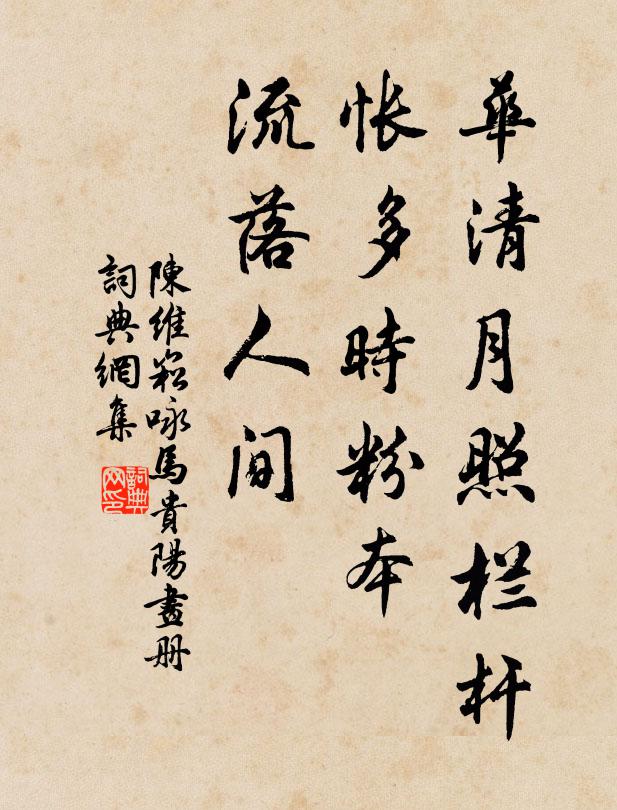 華清月照栏杆
怅多時粉本
流落人间
陳維崧咏馬貴陽畫册
詞典網集
詞典网印